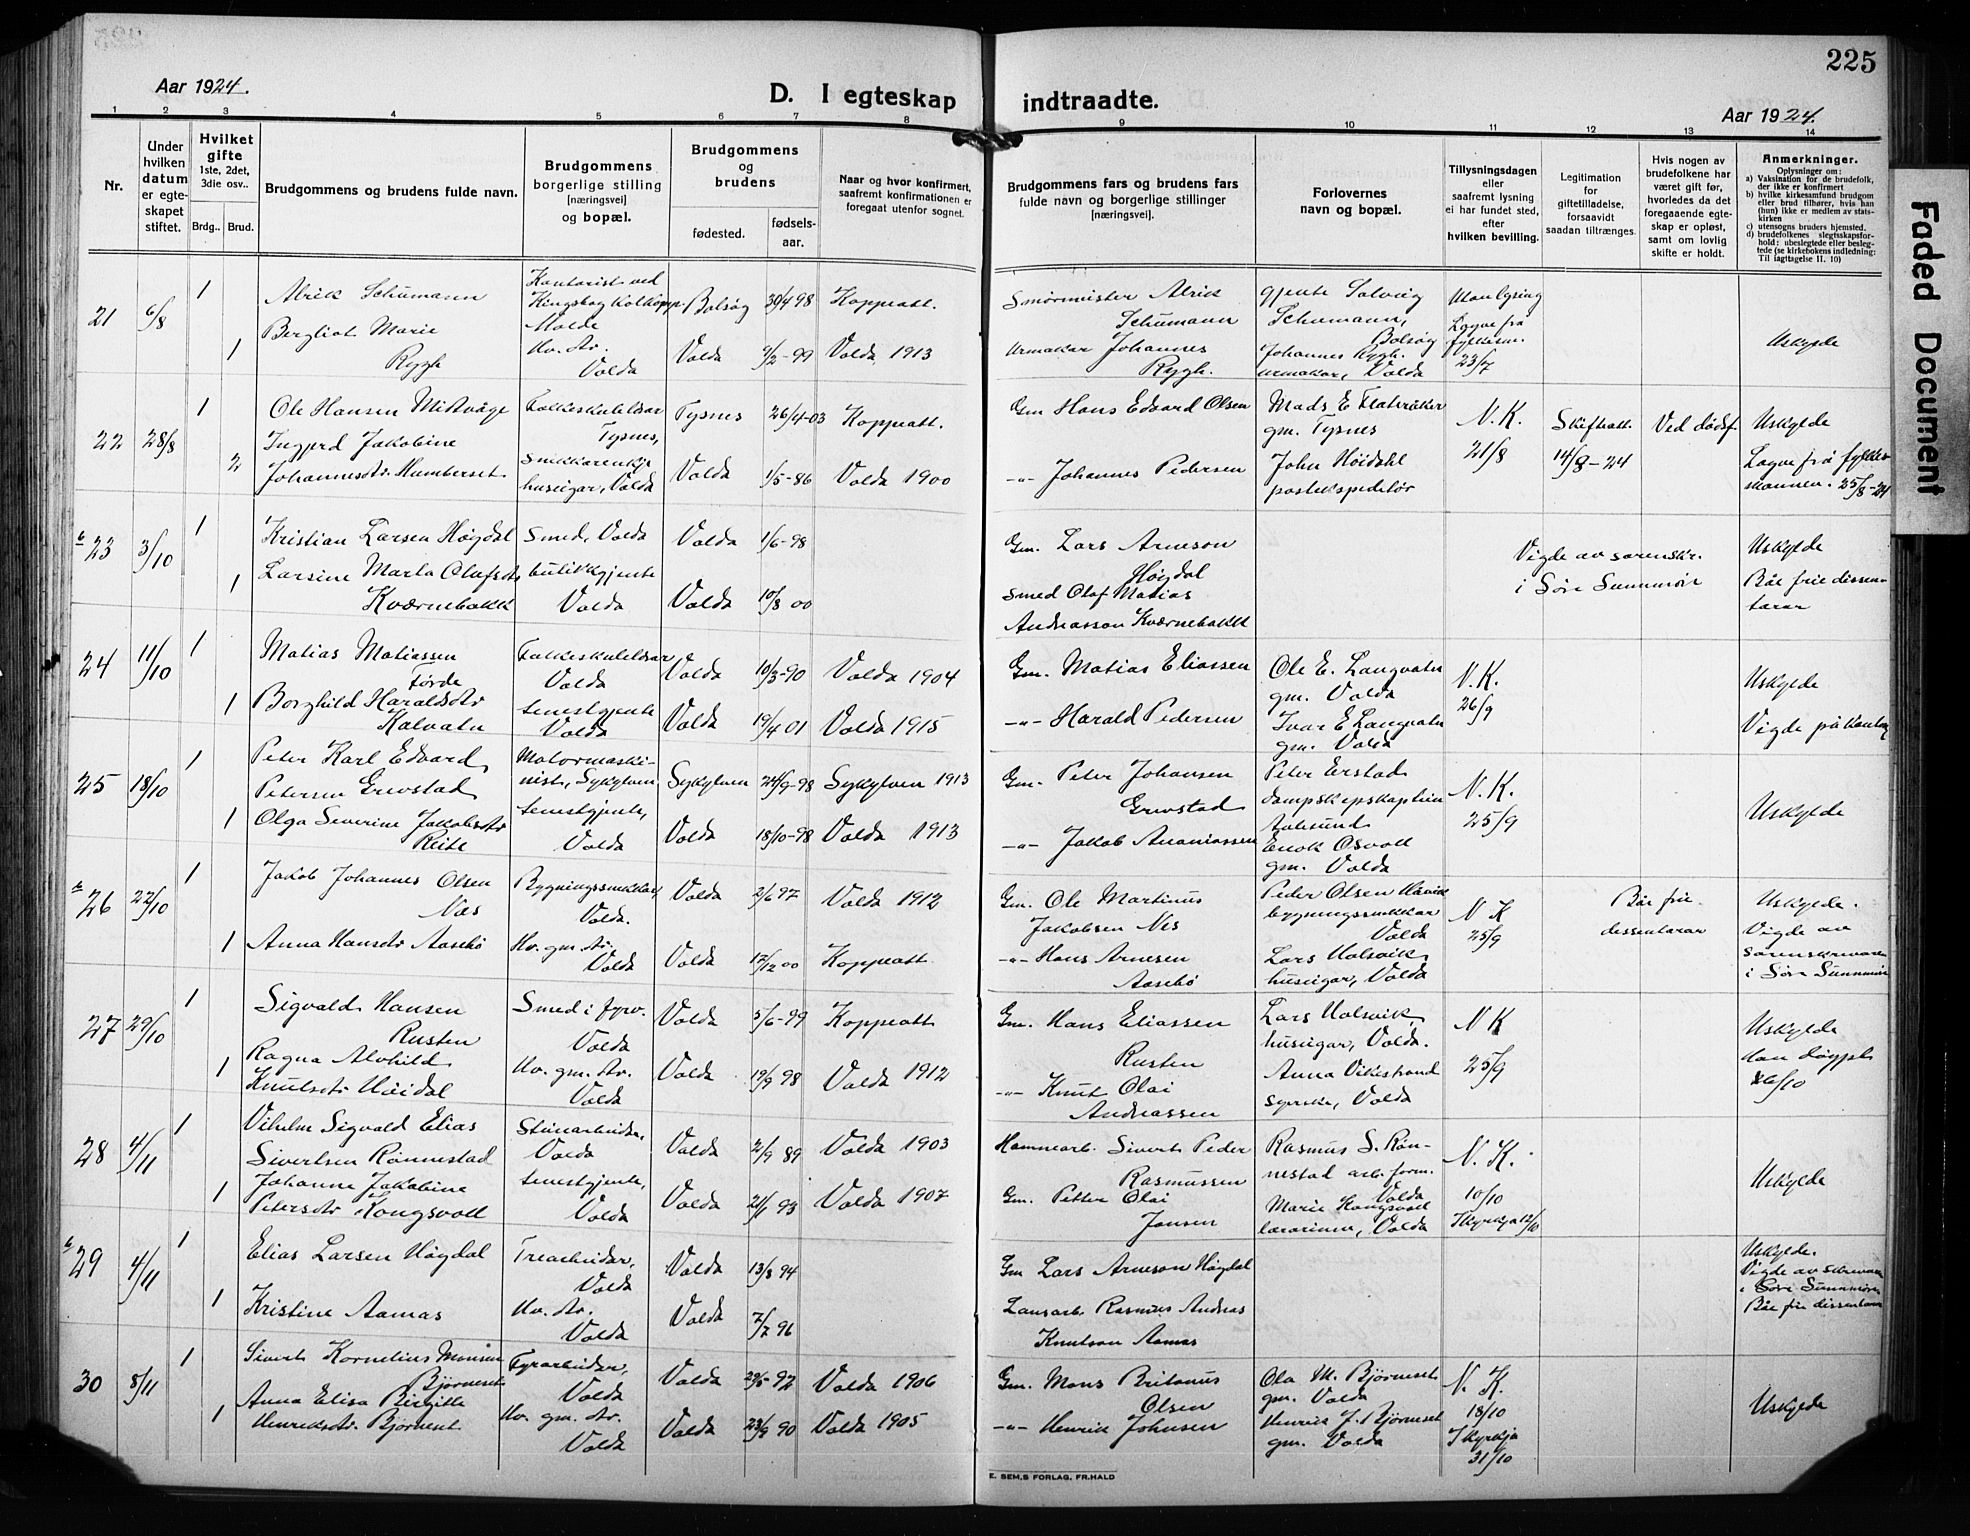 225
Aar 1924.
D. I egteskap indtraadte.
Aar 1924.
1 2 3 4 5 6 7 8 9 10 11 12 13 14
Nr.
Under hvilken datum er egteskapet stiftet.
Hvilket gifte
1ste, 2det, 3die osv..
Brdg.. Brud.
Brudgommens og brudens fulde navn.
Brudgommens borgerlige stilling [næringsvei] og bopæl.
Brudgommens og brudens
fødested. fødsels-aar.
Naar og hvor konfirmert, saafremt konfirmationen er foregaat utenfor sognet.
Brudgommens fars og brudens fars fulde navn og borgerlige stillinger [næringsvei].
Forlovernes navn og bopæl.
Tillysningsdagen eller saafremt lysning ei har fundet sted, efter hvilken bevilling.
Legitimation for giftetilladelse, forsaavidt saadan tiltrænges.
Hvis nogen av brudefolkene har været gift før, hvorledes da det foregaaende egteskap er opløst, samt om lovlig skifte er holdt.
Anmerkninger.
Oplysninger om:
a) Vaksination for de brudefolk, der ikke er konfirmert
b) hvilke kirkesamfund brudgom eller brud tilhører, hvis han (hun) ikke er medlem av statskirken
c) utensogns bruders hjemsted.
d) brudefolkenes slegtsskapsforhold: ubeslegtede eller beslegtede (se kirkebokens indledning: Til iagttagelse II. 10)
21 6/8 1 Alrik Schumann
Kontorist ved Kingsbay Kolkopp. Molde
Bolsøy 30/4 98 Koppeatt.
Smörmeister Alrik Schumann
gjente Solveig Schumann, Bolsøy
Utanlysing
Løyve frå fylkesm. 23/7
1 Bergliot Marie Rygh
Hv. dr. Volda
Volda 9/2-99 Volda 1913
Urmakar Johannes Rygh.
Johannes Rygh. urmakar, Volda
Uskylde
22 28/8 1 Ole Hansen Midtvåge
Folkeskulelærar Tysnes,
Tysnes 26/4-03 Koppeatt.
Gm Hans Edvard Olsen
Mads E Flateråker gm. Tysnes
N. K. 21/8
Skifteatt. 14/8-24
Ved dødsf.
Uskylde
Løyve frå fylkesmannen. 25/8-24
2 Ingprd Jakobine Johannesdtr. Humberset
Snikkarenkje huseigar, Volda
Volda 1/5-86 Volda 1900
-"- Johannes Pedersen
John Höidahl postekspeditør
23 3/10 1 Kristian Larsen Høgdal
Smed, Volda
Volda 1/6-98
Gm. Lars Arneson Høgdal
Vigde av sorenskr. i Søre Sunnmøre
Uskylde
Båe frie dissentarar
1 Larsine Marta Olafsdtr Kværnebakk
butikkgjente Volda
Volda 10/8 00
Smed Olaf Matias Andreasson Kværnebakk
24 11/10 1 Matias Matiassen Førde
Folkeskulelærar Volda
Volda 10/3-90 Volda 1904
Gm. Matias Eliassen
Ole E. Langvatn gm. Volda
N. K. 26/9
Uskylde
1 Borghild Haraldsdtr Kalvatn
tenestgjente Volda
Volda 19/4 01 Volda 1915
-"- Harald Pedersen
Ivar E Langvatn gm. Volda
Vigde på
25 18/10 1 Peter Karl Edvard Petersen Grevstad
Motormaskinist, Sykylven
Sykylven 24/9-98 Sykylven 1913
Gm. Peter Johansen Grevstad
Peter Erstad dampskipskaptein Aalesund
N. K. 25/9
Uskylde
1 Olga Severine Jakobsdtr Reite
tenestgjente, Volda
Volda 18/10-98 Volda 1913
-"- Jakob Ananiassen
Enok Osvoll gm. Volda
26 22/10 1 Jakob Johannes Olsen Næs
Bygningssnikkar, Volda.
Volda 2/6 97 Volda 1912
Gm. Ole Martinus Jakobsen Nes
Peder Olsen bygningssnikkar Volda
N K 25/9
Båe frie dissentarar
Uskylde.
Vigde av sorenskrivaren i Søre Sunnmøre
1 Anna Hansdtr Aasebö
Hv. gm. dr. Volda
Volda 17/12 00 Koppeatt
-"- Hans Arnesen Aasebö
Lars Halsvik, huseigar, Volda
27 29/10 1 Sigvald Hansen Rusten
Smed i fyrv. Volda
Volda 5/6-99 Koppeatt
Gm. Hans Eliassen Rusten
Lars Halsvik, huseigar, Volda.
N K 25/9
Uskylde
26/10
1 Ragna Alvhild Knutsdtr Höidal
Hv. gm. dtr. Volda
Volda 19/9 98 Volda 1912
-"- Knut Olai Andreassen
Anna Vikestrand syerske, Volda
28 4/11 1 Vilhelm Sigvald Elias Sivertsen Rønnestad
Steinarbeidar, Volda
Volda 2/9 89 Volda 1903
Hamnearb. Sivert Peder Rasmussen
Rasmus S. Rønnestad arb. form. Volda
N. K. 10/10
I kyrkja 12/10
Uskylde
1 Johanne Jakobine Petersdtr Kongsvoll
tenestgjente, Volda
Volda 21/1 93 Volda 1907
Gm. Petter Olai Jonsen
Marie Kongsvoll lærarinne, Volda
29 4/11 1 Elias Larsen Høgdal
Trearbeidar, Volda
Volda 13/8 94
Gm Lars Arneson Høgdal
Uskylde.
Vigde av skrivaren i Søre Sunnmøre
Båe frie dissentarar
1 Kristine Aamas
Hv. dtr. Volda
Volda 7/7 96
Lausarb. Rasmus Andreas Knutson Aamas
30 8/11 1 Sivert Kornelius Monsen Bjørneset
Fyrarbeidar, Volda
Volda 29/5-92 Volda 1906
Gm. Mons Britanus Olsen
Ola M. Bjørneset gm. Volda
N. K. 18/10
I kyrkja 31/10
Uskylde
1 Anna Elisa Birgitte Henriksdtr. Bjørneset
Hv. gm. dtr. Volda
Volda 23/9 90 Volda 1905
-"- Henrik Johnsen
Henrik J. Bjørneset gm. Volda
E. SEM,S FORLAG, FR.HALD
Faded Document